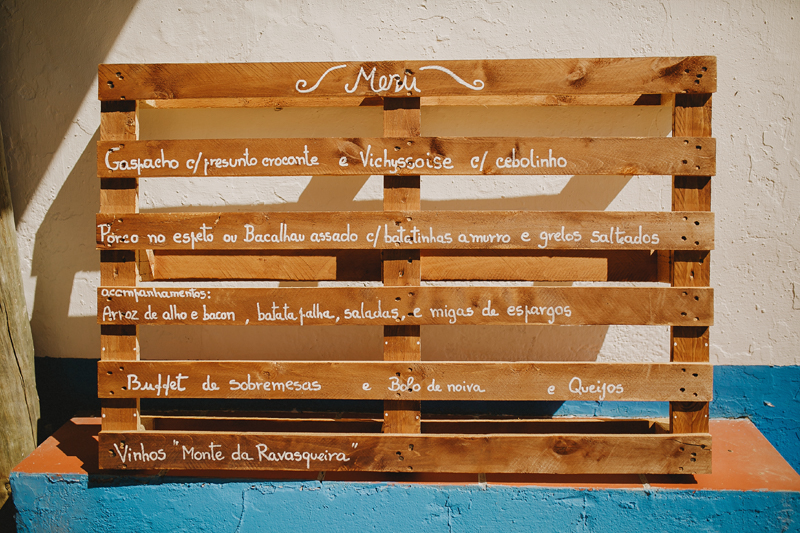 Menu
Gaspacho c/presunto crocante e Vichyssoise c/ cebolinho
Porco no espeto ou Bacalhau assado c/batatinhas a murro e grelos salteados
acompanhamentos:
Arroz de alho e bacon , batata palha, saladas, e migas de espargos
Buffet de sobremesas e Bolo de noiva e Queijos
Vinhos "Monte da Ravasqueira"